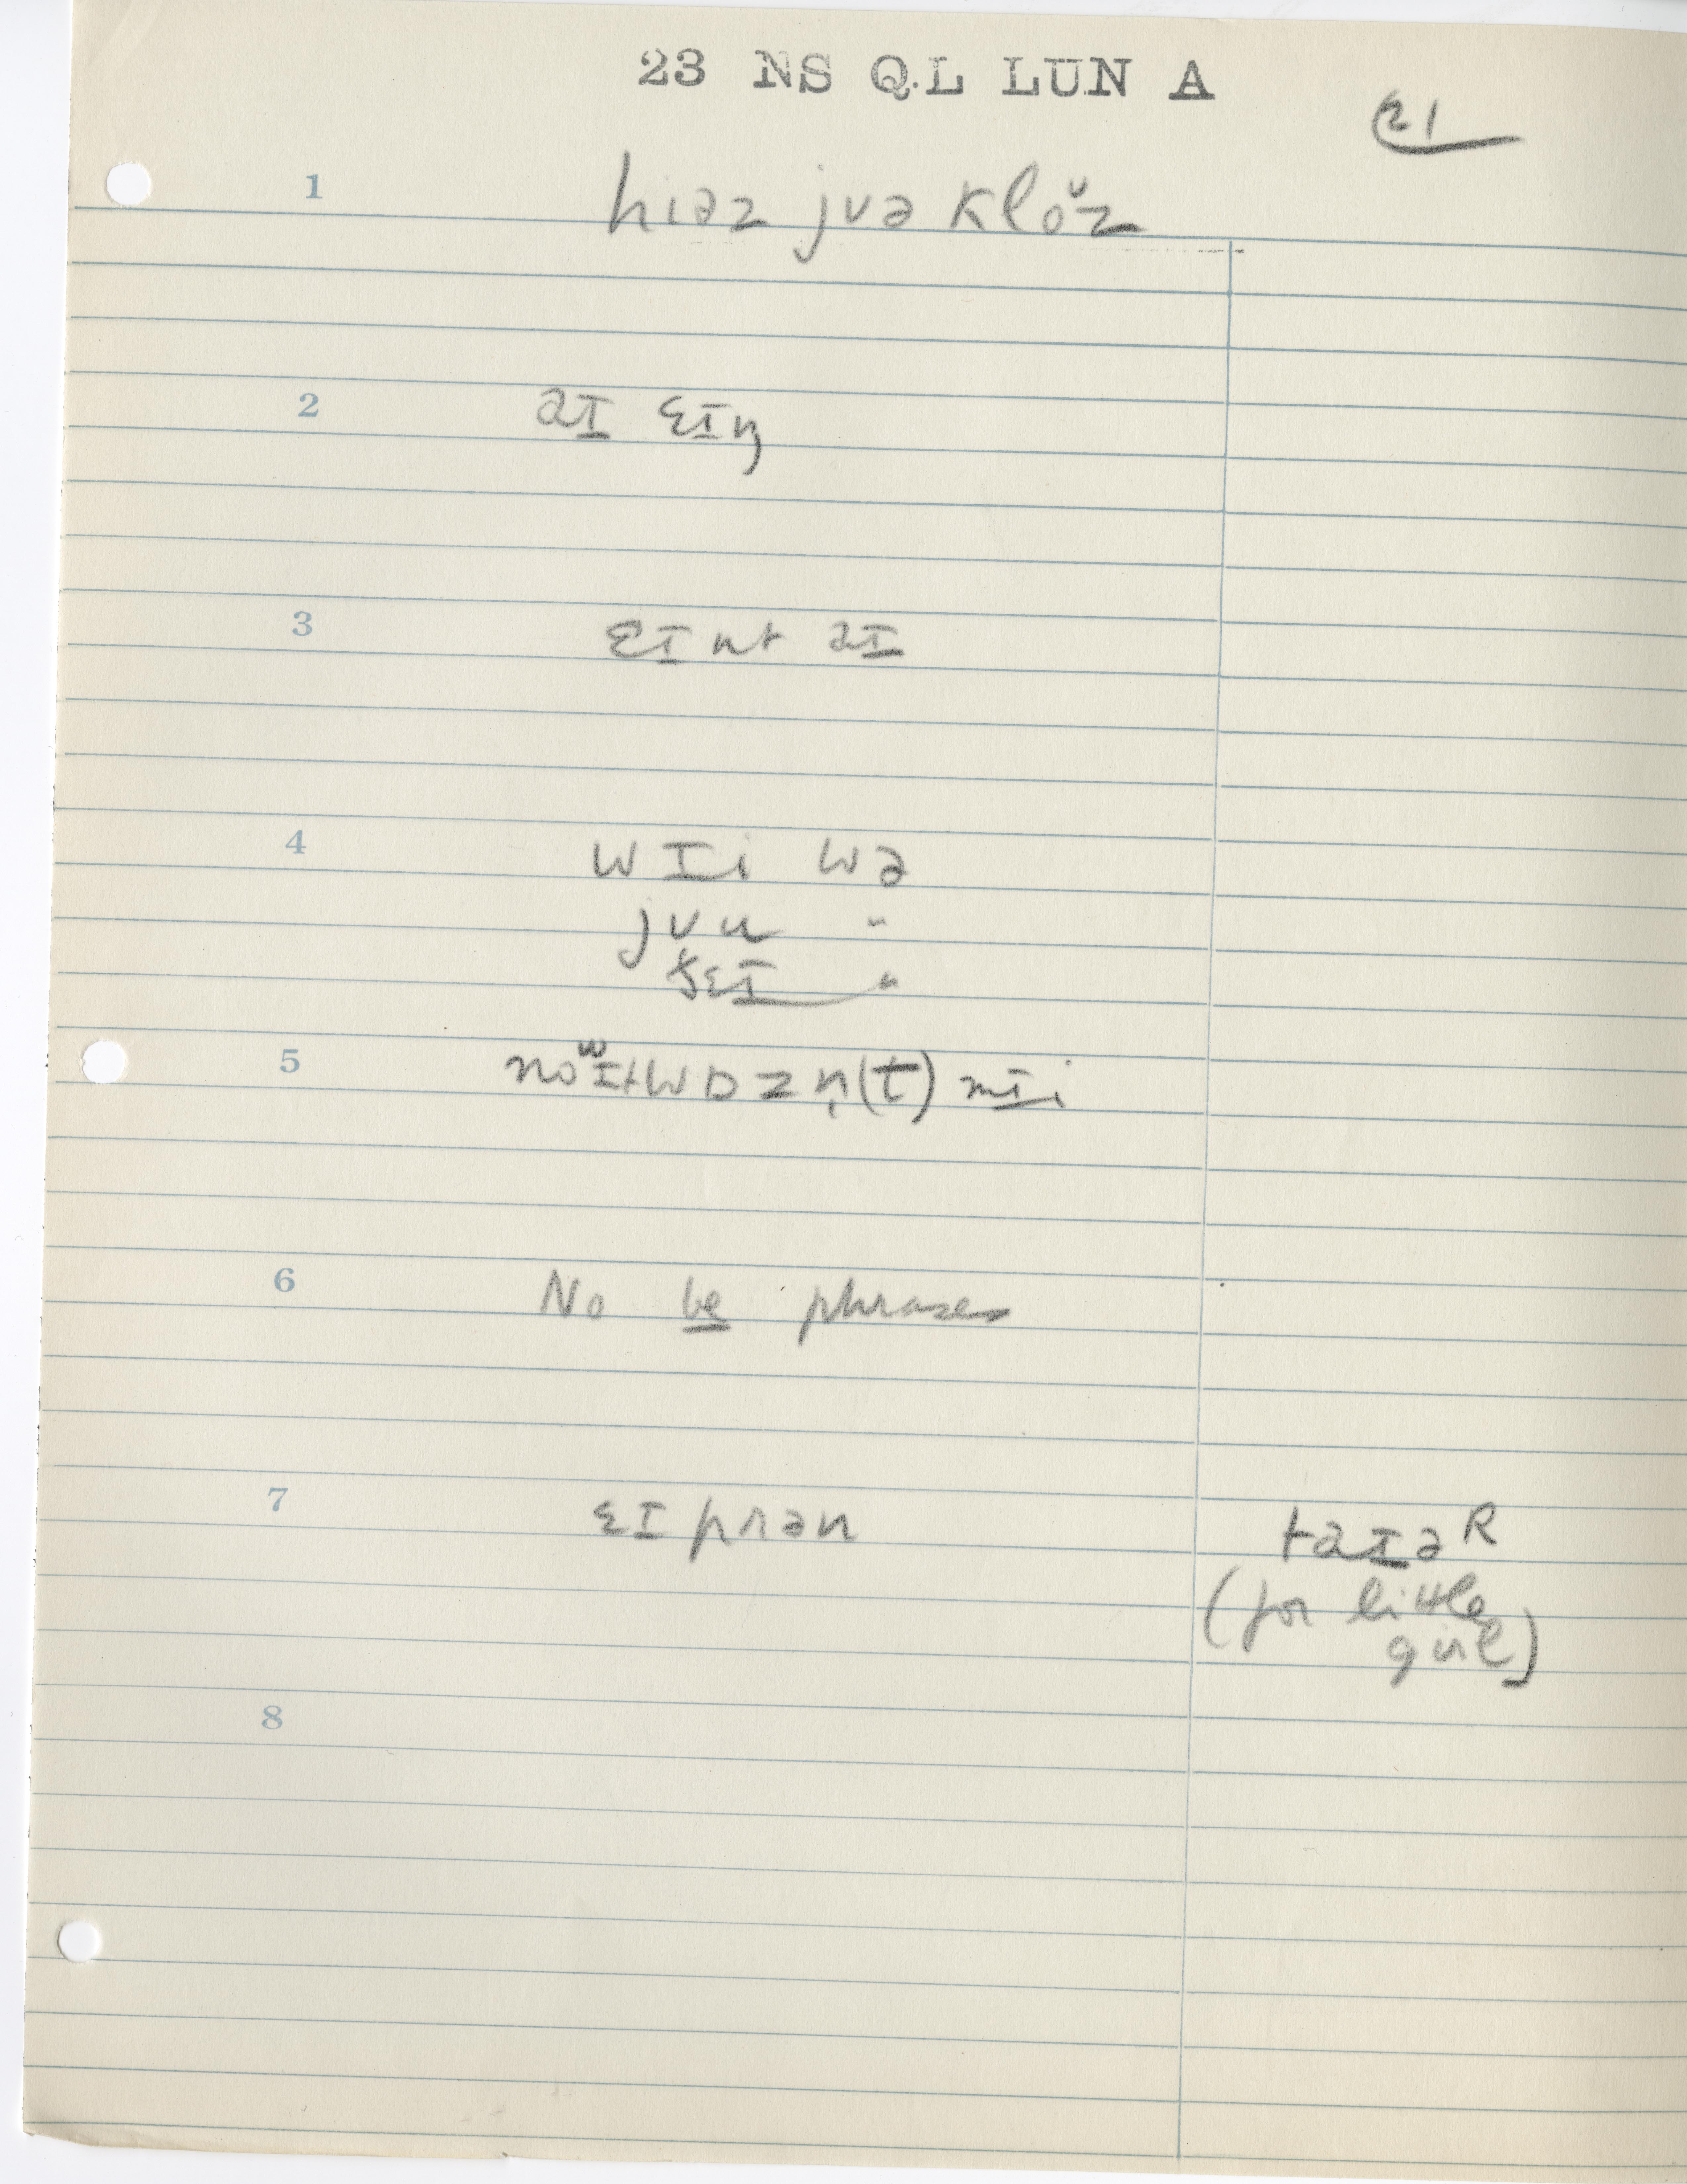 23 NS Q.L LUN A
21
1 hiəz jʊə kloᶸz
2 aɪ ɛɪŋ
3 ɛɪnt aɪ
4 wɪi wə
jʊu "
ðɛɪ "
5 noʷɪtwɒzn̩(t) mɪi
6 No be phrases
7 ɛɪprən
taɪəᴿ
(for little
girl)
8